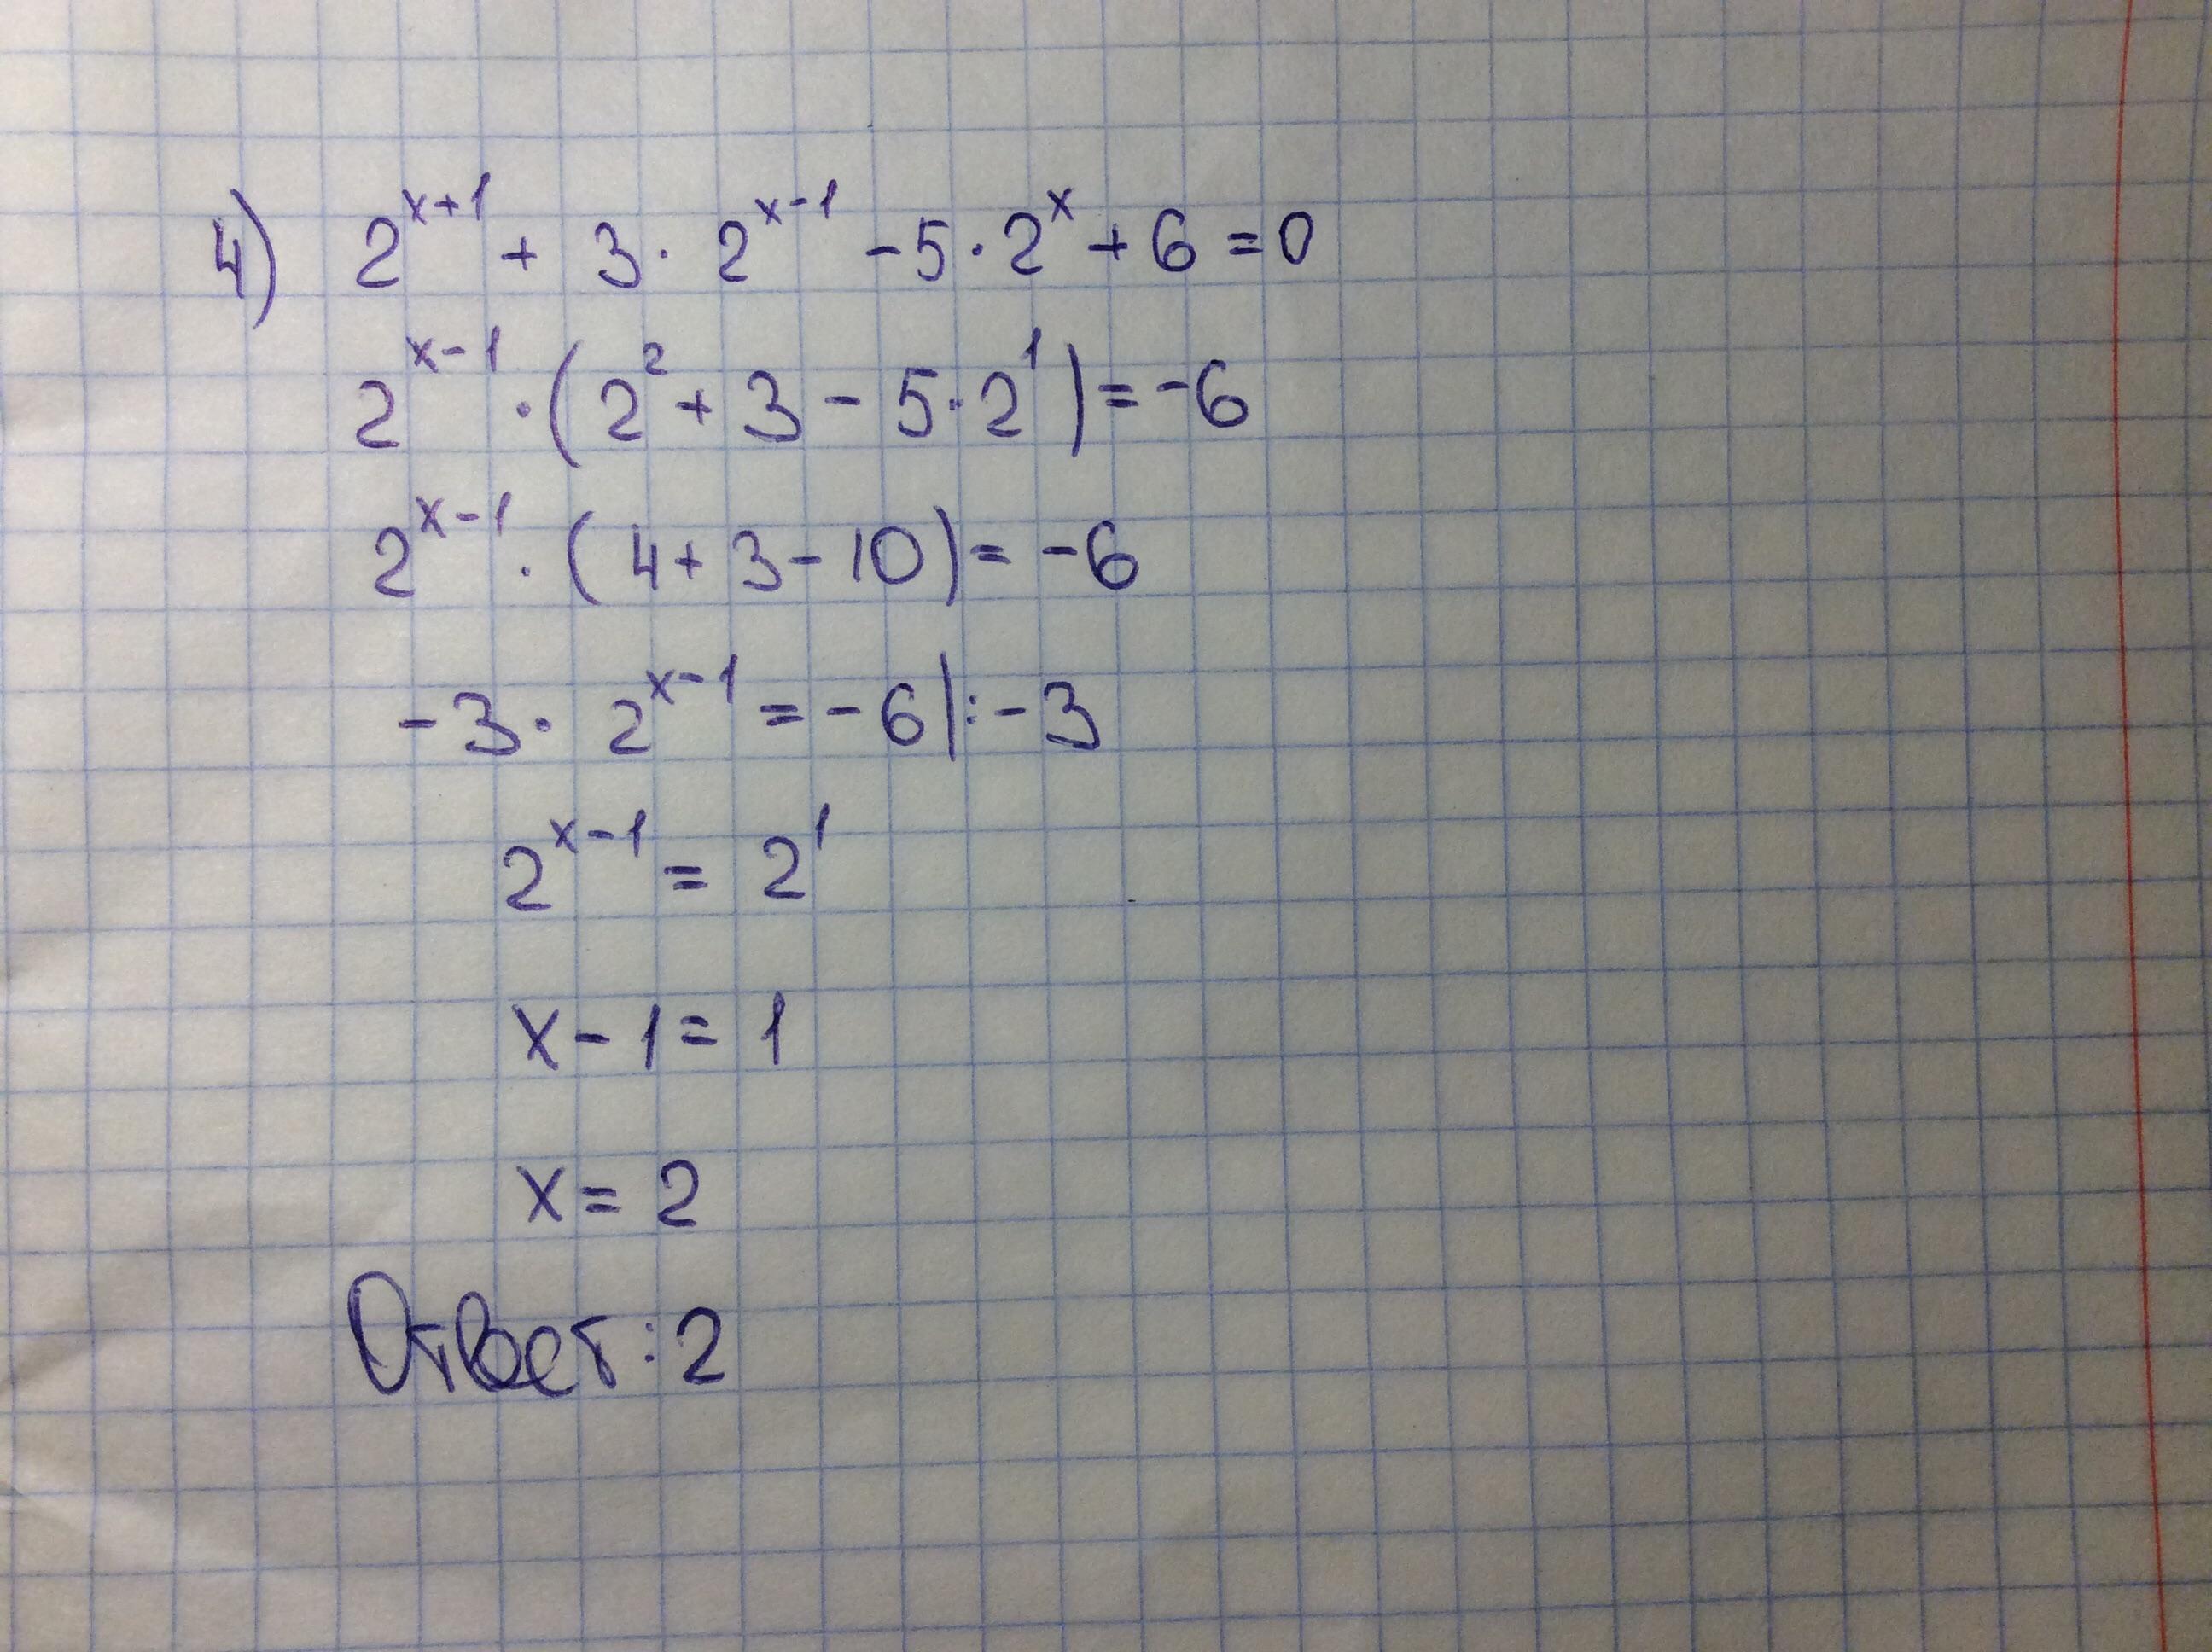 4) 2^{x+1} + 3 · 2^{x-1} - 5 · 2^x + 6 = 0
2^{x-1} · (2^2 + 3 - 5 · 2^1) = -6
2^{x-1} · (4 + 3 - 10) = -6
-3 · 2^{x-1} = -6 |: -3
2^{x-1} = 2^1
x - 1 = 1
x = 2
Ответ: 2